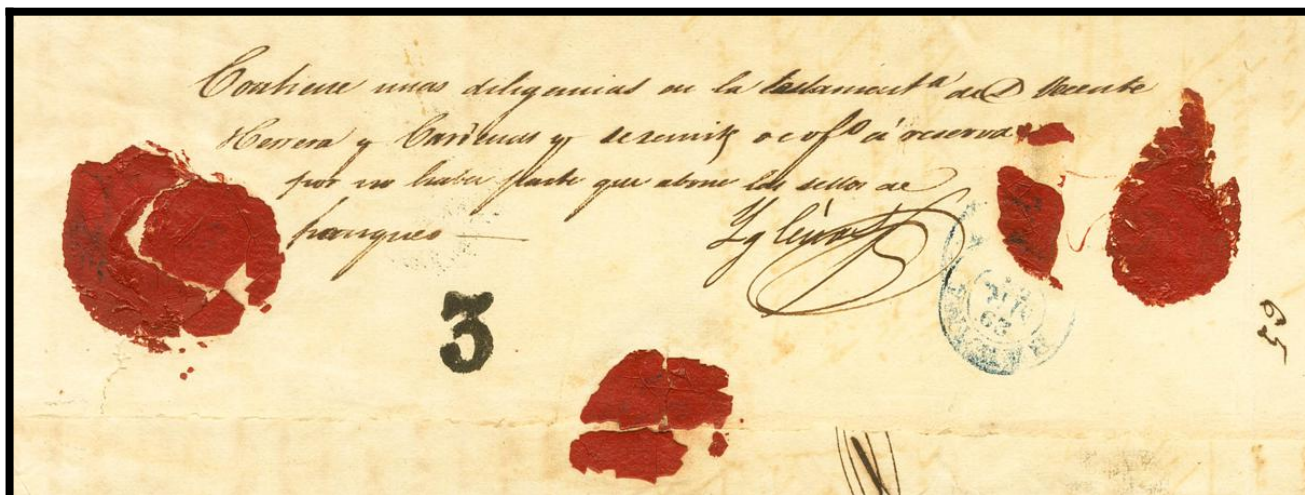 Contiene unas diligencias en la testament.ª de D Vicente
Herrera y Cardenas y se remite à reserva
por no haber parte que abone los sellos de
franqueo
3
63
59